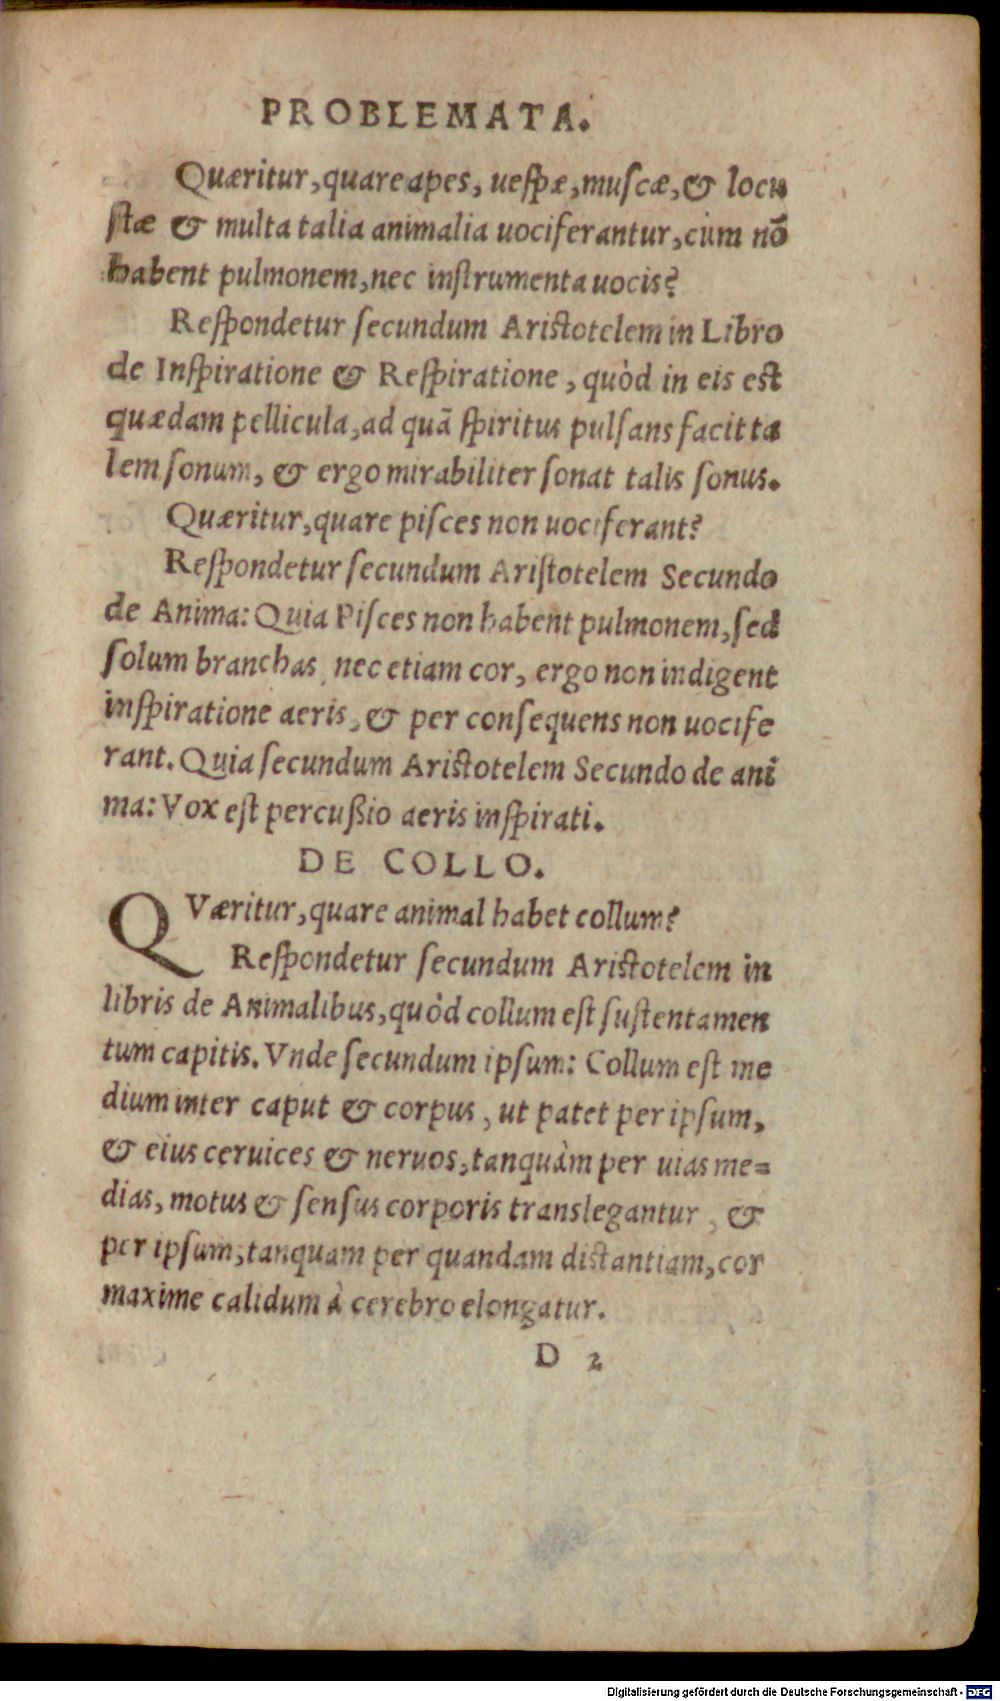 PROBLEMATA.
Quæritur, quare apes, ueſpæ, muſcæ, & locu
ſtæ & multa talia animalia uociferantur, cùm nō
habent pulmonem, nec inſtrumenta uocis?
Reſpondetur ſecundum Ariſtotelem in Libro
de Inſpiratione & Reſpiratione, quòd in eis eſt
quædam pellicula, ad quā ſpiritus pulſans facit ta
lem ſonum, & ergo mirabiliter ſonat talis ſonus.
Quæritur, quare piſces non uociferant?
Reſpondetur ſecundum Ariſtotelem Secundo
de Anima: Quia Piſces non habent pulmonem, ſed
ſolum branchas, nec etiam cor, ergo non indigent
inſpiratione aeris, & per conſequens non uocife
rant. Quia ſecundum Ariſtotelem Secundo de ani
ma: Vox eſt percuſsio aeris inſpirati.
DE COLLO.
QVæritur, quare animal habet collum?
Reſpondetur ſecundum Ariſtotelem in
libris de Animalibus, quòd collum eſt ſuſtentamen
tum capitis. Vnde ſecundum ipſum: Collum eſt me
dium inter caput & corpus, ut patet per ipſum,
& eius ceruices & neruos, tanquàm per uias me=
dias, motus & ſenſus corporis translegantur, &
per ipſum, tanquam per quandam diſtantiam, cor
maxime calidum à cerebro elongatur.
D 2
Digitalisierung gefördert durch die Deutsche Forschungsgemeinschaft - DFG